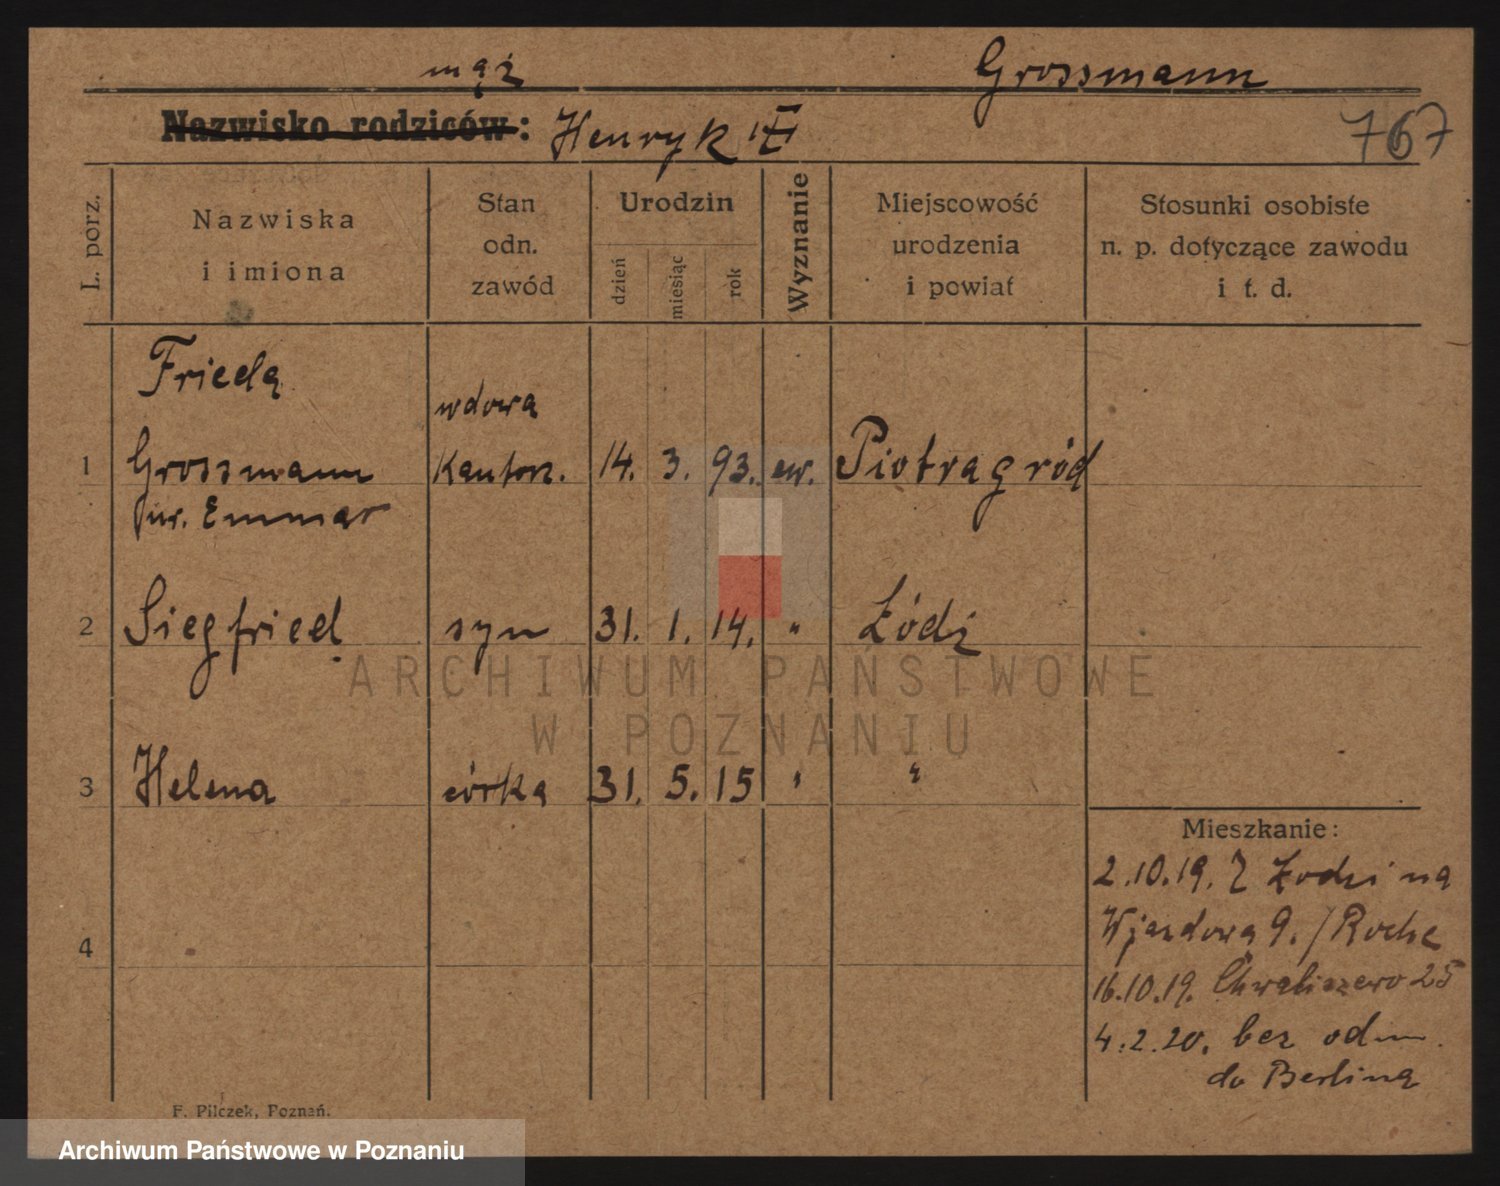 mąż Grossmann
Nazwisko rodziców: Henryk
767
L. porz.
Nazwiska
i imiona
Stan
odn.
zawód
Urodzin
dzień
miesiąc
rok
Wyznanie
Miejscowość
urodzenia
i powiat
Stosunki osobiste
n. p. dotyczące zawodu
i t. d.
Frieda
wdowa
1 Grossmann Kantorz. 14. 3. 93. ew. Piotragród
ur. Emmar
2 Siegfried syn 31. 1. 14. " Łódź
3 Helena córka 31. 5. 15 " "
4
Mieszkanie:
2.10.19. Z Łodzi na
Wjazdowa 9. / Roche
16.10.19. Chwaliszewo 25
4.2.20. bez odm.
do Berlina
F. Pilczek, Poznań.
ARCHIWUM PAŃSTWOWE
W POZNANIU
Archiwum Państwowe w Poznaniu